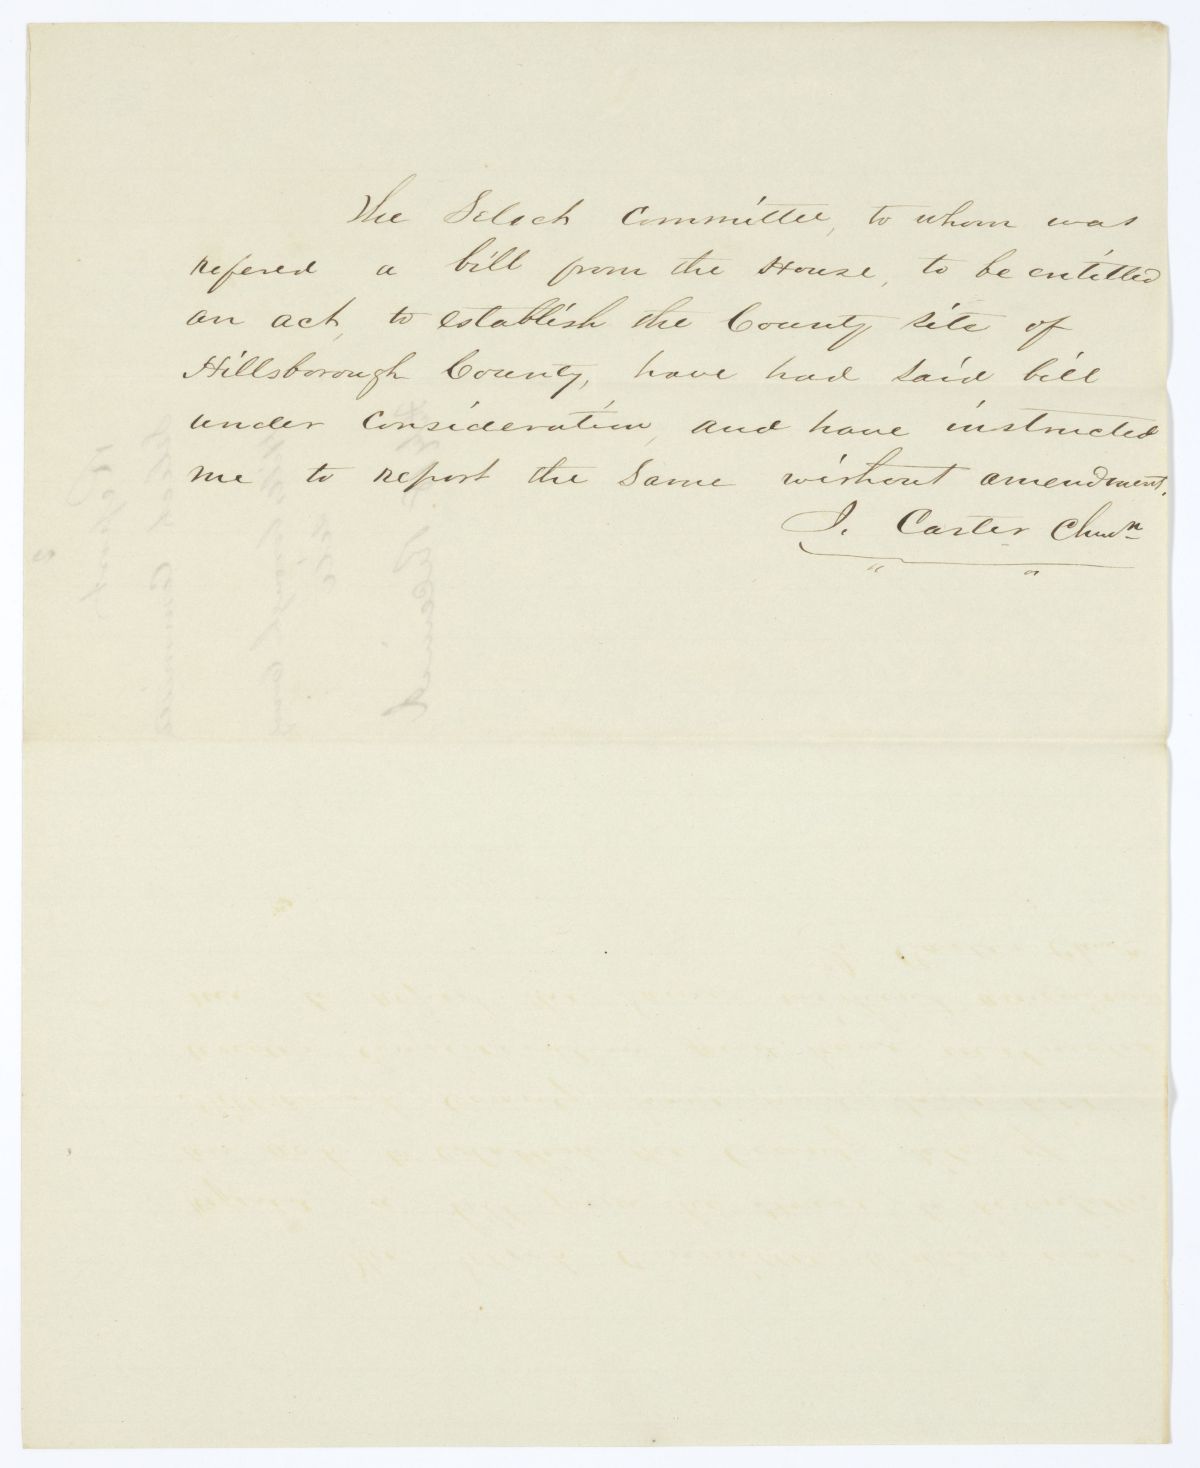 The Select Committee, to whom was
refered a bill from the House, to be entitled
an act, to establish the County site of
Hillsborough County, have had said bill
under consideration, and have instructed
me to report the same without amendment.
J. Carter Chmn